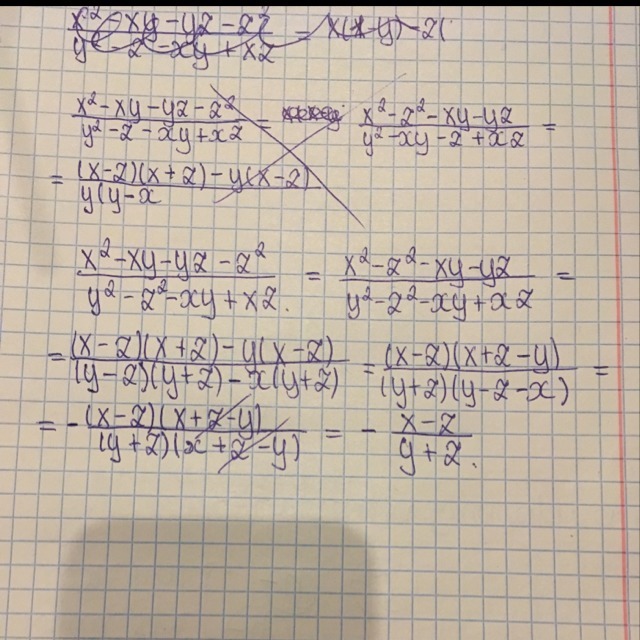 x² - xy - yz - z² / y² - z² - xy + xz = x(x-y) - z(
x² - xy - yz - z² / y² - z - xy + xz = x² - z² - xy - yz / y² - xy - z + xz =
= (x-z)(x+z) - y(x-z) / y(y-x
x² - xy - yz - z² / y² - z² - xy + xz. = x² - z² - xy - yz / y² - z² - xy + xz =
= (x-z)(x+z) - y(x-z) / (y-z)(y+z) - x(y+z) = (x-z)(x+z-y) / (y+z)(y-z-x) =
= - (x-z)(x+z-y) / (y+z)(x+z-y) = - x-z / y+z.